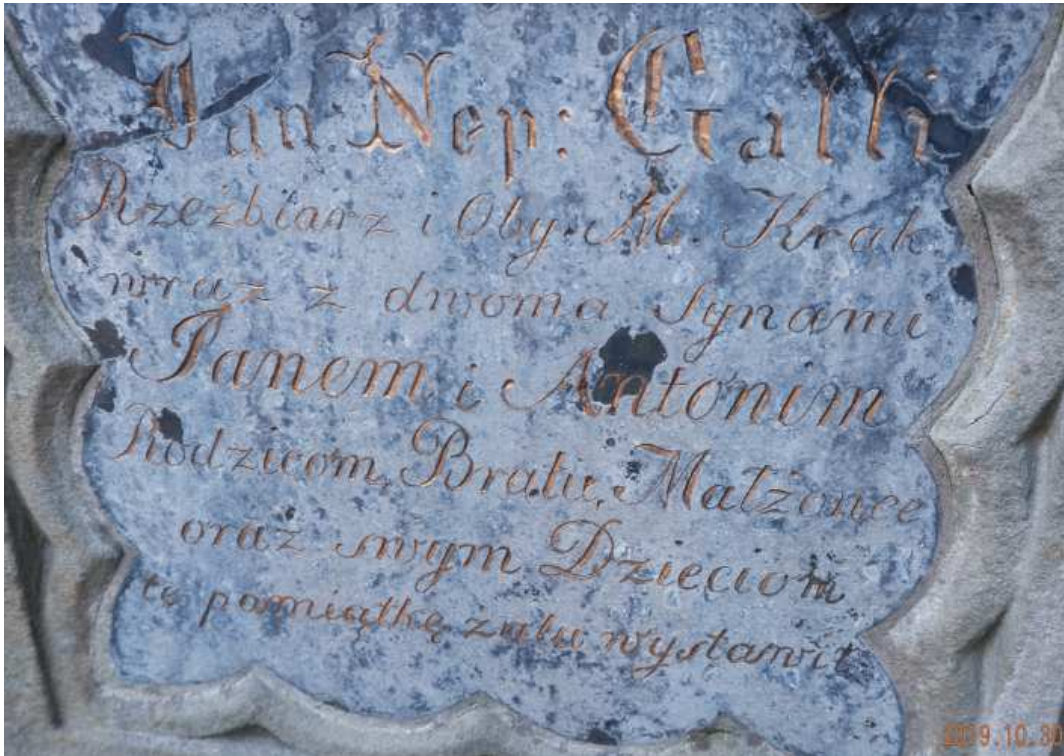 Jan. Nep: Galli
Rzeźbiarz i Oby. M. Krak
wraz z dwoma Synami
Janem i Antonim
Rodzicom, Bratu, Małżonce
oraz swym Dzieciom
tę pamiątkę żalu wystawił
2019.10.31